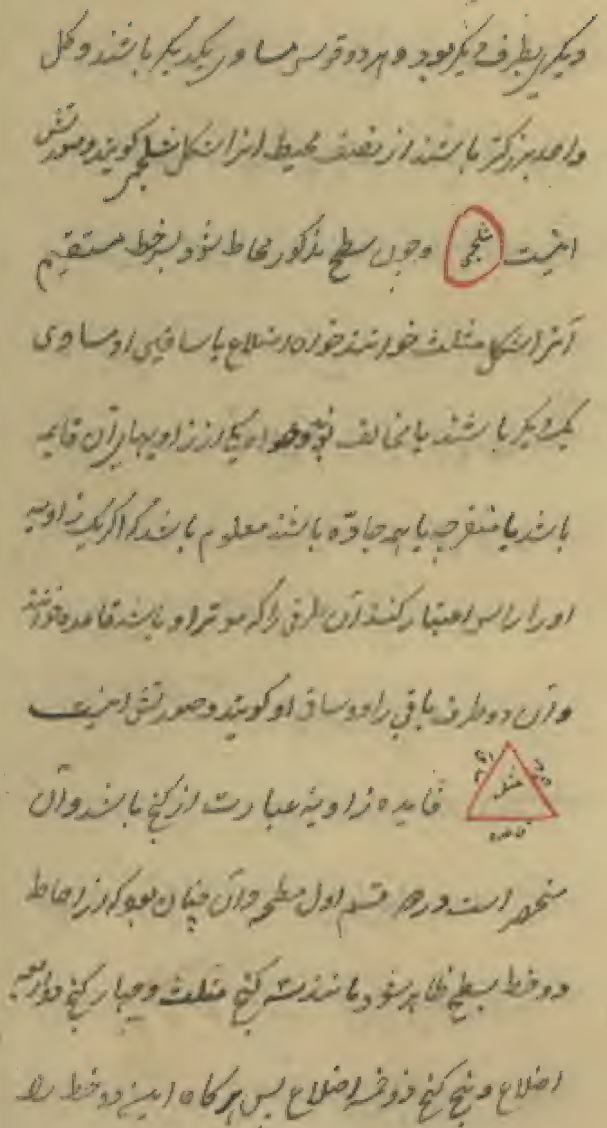 دیکری بطرف دیکر بود و هر دو قوس مساوی یکدیکر باشند و کل
واحد بزرکتر باشند از نصف محیط انرا شکل شلجمی کویند و صورتش
اینست شلجمی و چون سطح مذکور محاط شود بسه خط مستقیم
آنرا شکل مثلث خوانند خواه اضلاع یا ساقین او مساوی
یکدیکر باشند یا مخالف و خواه یکی از زاویهای آن قایمه
باشد یا منفرجه یا همه حاده باشند معلوم باشد که اکر یک زاویه
اورا راس اعتبار کنند آن طرفی را که موتر او باشد قاعده خوانند
و آن دو طرف باقی را دو ساق او کویند و صورتش اینست
ساق مثلث ساق قاعده فایده زاویه عبارت از کنج باشد و آن
منحصر است در دو قسم اول مسطحه و آن چنان بود که از احاطه
دو خط بسطح ظاهر شود مانند سه کنج مثلث و چهار کنج ذو اربعه
اضلاع و پنج کنج ذو خمسه اضلاع پس هرکاه این دو خط را